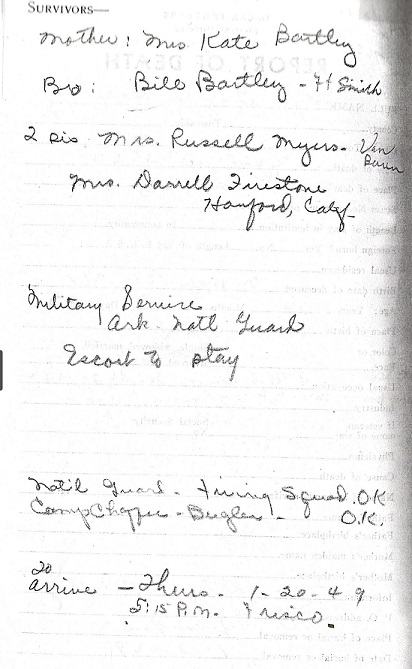 SURVIVORS—
Mother: Mrs Kate Bartley
Bro: Bill Bartley - Ft Smith
2 sis Mrs. Russell Myers - Van Buren
Mrs. Darrell Firestone
Hanford, Calif.
Military Service
Ark. Natl Guard
Escort to stay
Nat'l Guard - Firing Squad. OK
Camp Chaffee - Bugler - O.K.
To
arrive - Thurs. 1-20-49
5:15 P.M. Frisco.